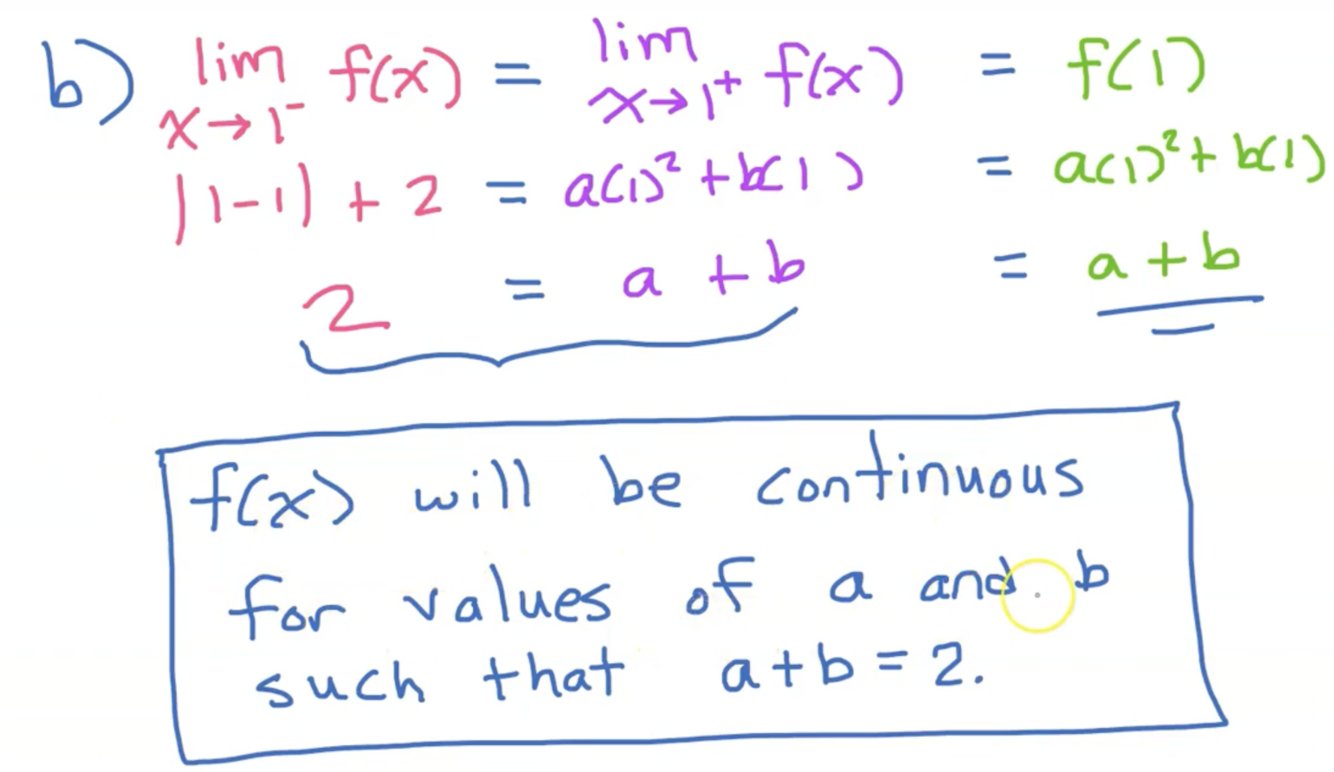 b) lim x→1⁻ f(x) = lim x→1⁺ f(x) = f(1)
|1-1| + 2 = a(1)² + b(1) = a(1)² + b(1)
2 = a + b = a + b
f(x) will be continuous
for values of a and b
such that a+b=2.